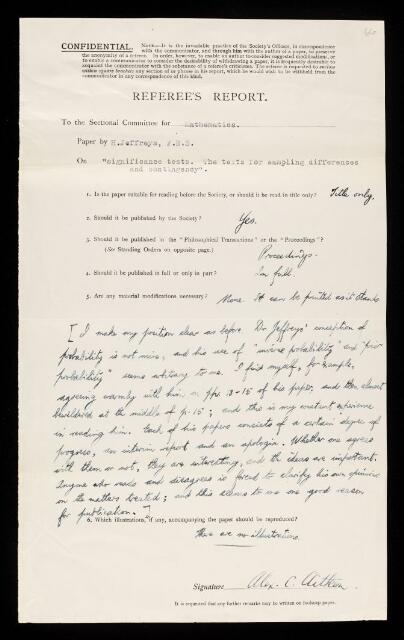 60
CONFIDENTIAL. NOTE.—It is the invariable practice of the Society's Officers, in correspondence
with the communicator, and through him with the author of a paper, to preserve
the anonymity of a referee. In order, however, to enable an author to consider suggested modifications, or
to enable a communicator to consider the desirability of withdrawing a paper, it is frequently desirable to
acquaint the communicator with the substance of a referee's criticisms. The referee is requested to
within square brackets any section of or phrase in his report, which he would wish to be withheld from the
communicator in any correspondence of this kind.
REFEREE'S REPORT.
To the Sectional Committee for Mathematics.
Paper by H.Jeffreys, F.R.S.
On "Significance tests. The tests for sampling differences
and contingency".
1. Is the paper suitable for reading before the Society, or should it be read in title only? Title only.
2. Should it be published by the Society? Yes.
3. Should it be published in the "Philosophical Transactions" or the "Proceedings"?
(See Standing Orders on opposite page.) Proceedings.
4. Should it be published in full or only in part? In full.
5. Are any material modifications necessary? None. It can be printed as it stands
[I make my position clear as before. Dr Jeffreys' conception of
probability is not mine, and his use of "inverse probability" and "prior
probability" seems arbitrary to me. I find myself, for example,
agreeing warmly with him on pps. 13-15 of his paper, and then almost
bewildered at the middle of p. 15; and this is my constant experience
in reading him. Each of his papers consists of a certain degree of
progress, an interim report and an apologia. Whether one agrees
with them or not, they are interesting, and the ideas are important.
Anyone who reads and disagrees is forced to clarify his own opinions
on the matters treated; and this seems to me one good reason
for publication.]
6. Which illustrations, if any, accompanying the paper should be reproduced?
There are no illustrations.
Signature Alex. C. Aitken
It is requested that any further remarks may be written on foolscap paper.